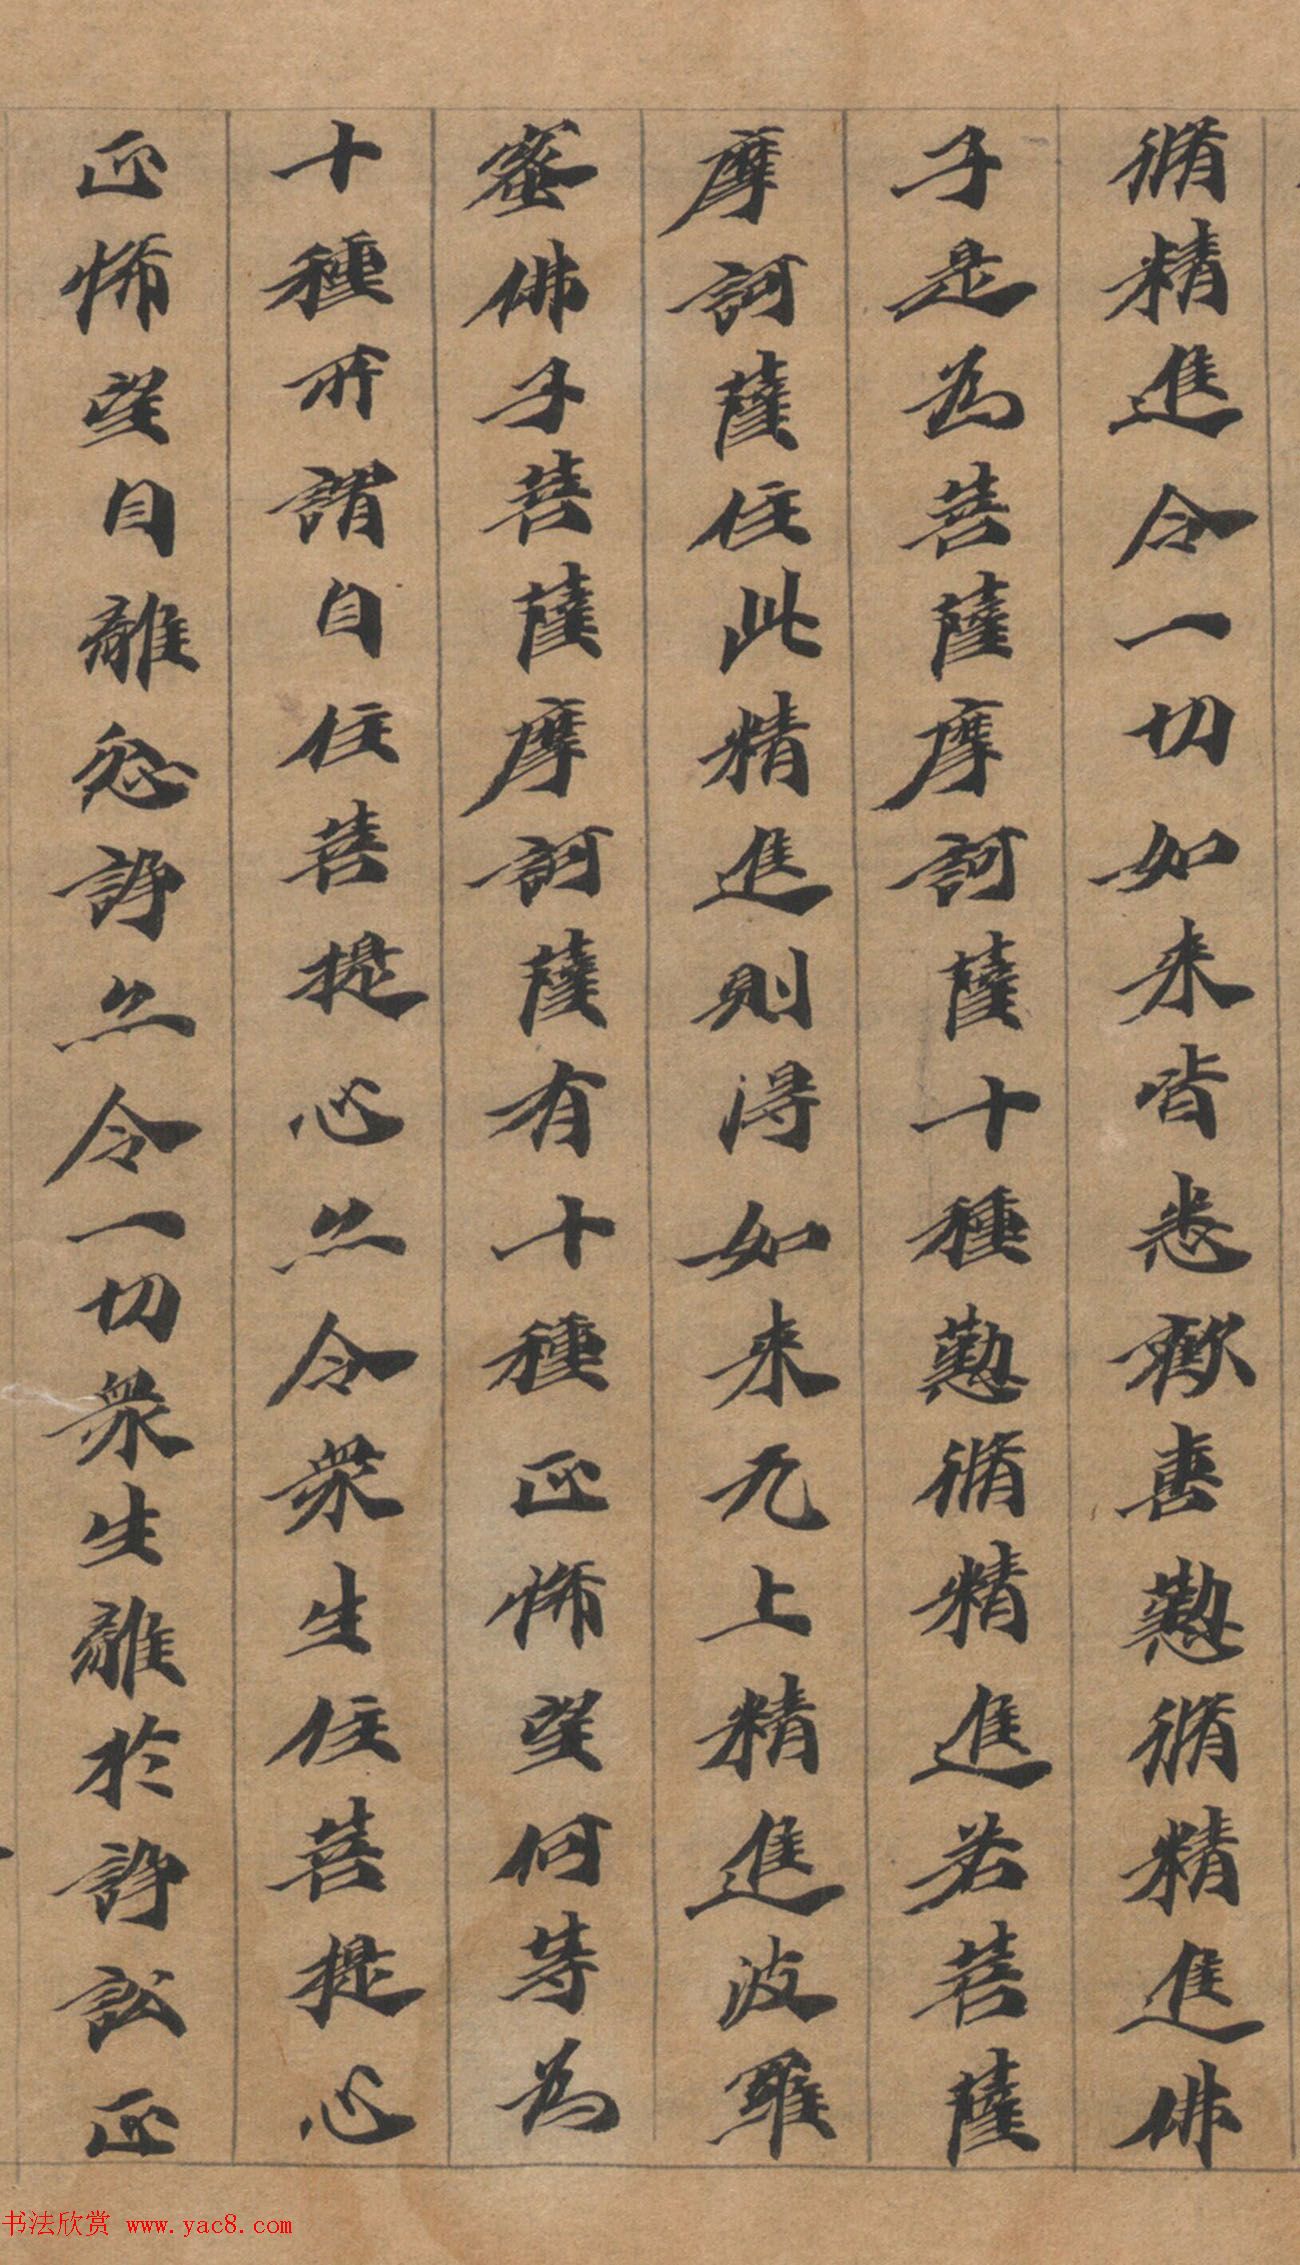 脩精進令一切如来皆悉歡喜懃脩精進佛
子是為菩薩摩訶薩十種懃脩精進若菩薩
摩訶薩住此精進則得如来无上精進波羅
蜜佛子菩薩摩訶薩有十種正怖望何等為
十種所謂自住菩提心亦令衆生住菩提心
正怖望自離忿諍亦令一切衆生離於諍訟正
书法欣赏 www.yac8.com